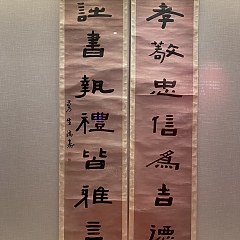 孝敬忠信爲吉德
詩書執禮皆雅言